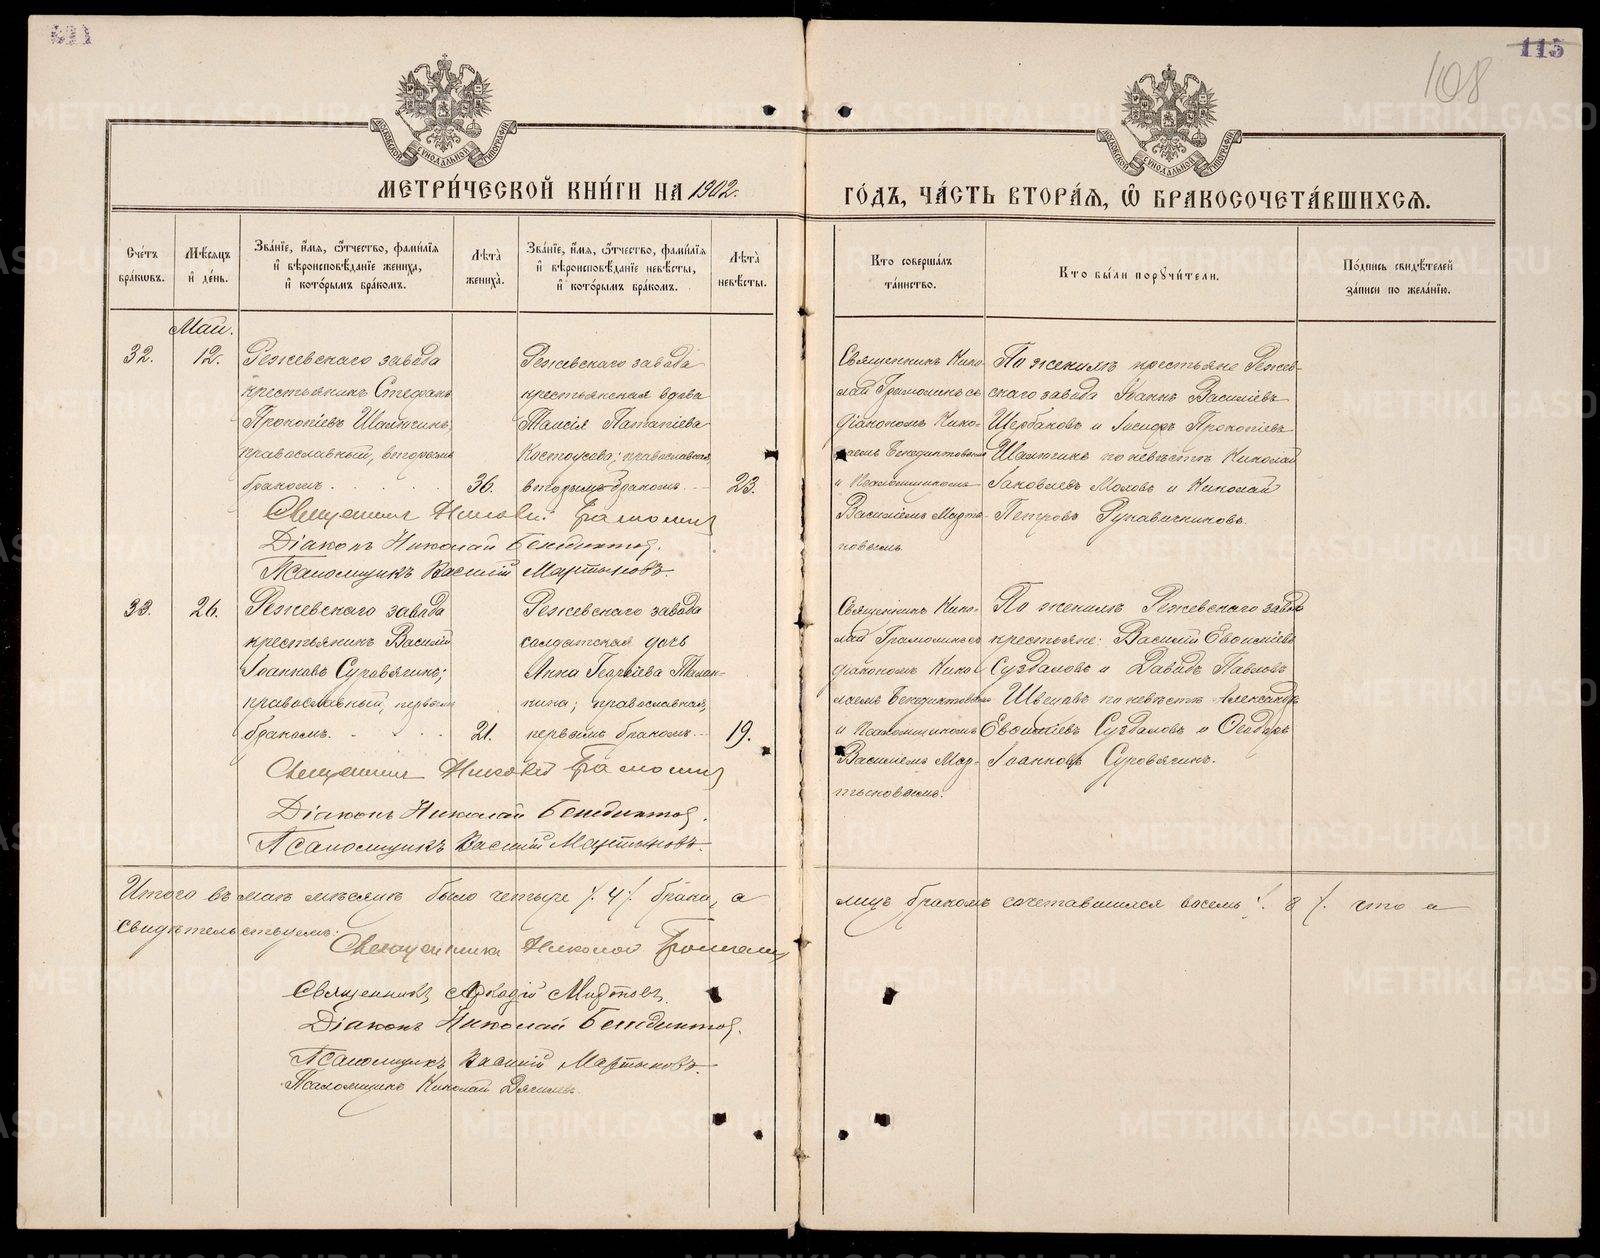 115
108
МЕТРИ́ЧЕСКОЙ КНИ́ГИ НА 1902.
ГО́ДЪ, ЧА́СТЬ ВТОРА́Ѧ, Ѽ БРАКОСОЧЕТА́ВШИХСѦ.
Сче́тъ бра́ковъ.
Мѣ́сѧцъ и҆ де́нь.
Зва́нїе, и҆́мѧ, ѻ҆́тчество, фами́лїѧ и҆ вѣроисповѣ́данїе жениха̀, и҆ кото́рымъ бра́комъ.
Лѣта̀ жениха̀.
Зва́нїе, и҆́мѧ, ѻ҆́тчество, фами́лїѧ и҆ вѣроисповѣ́данїе невѣ́сты, и҆ кото́рымъ бра́комъ.
Лѣта̀ невѣ́сты.
Кто̀ соверша́лъ та́инство.
Кто̀ бы́ли порꙋчи́тели.
По́дпись свидѣ́телей за́писи по жела́нїю.
Май.
32.
12.
Режевскаго завода
крестьянинъ Стефанъ
Прокопіевъ Шаманинъ,
православный, вторымъ
бракомъ.
36.
Режевскаго завода
крестьянская вдова
Таисія Патапіева
Костоусова; православная,
вторымъ бракомъ.
23.
Священникъ Нико-
лай Грамолинъ съ
діакономъ Нико-
лаемъ Бенедиктовымъ
и Псаломщикомъ
Василіемъ Марты-
новымъ.
По женихѣ крестьяне Режев-
скаго завода Іоаннъ Василіевъ
Щербаковъ и Іосифъ Прокопіевъ
по невѣстѣ Николай
Іаковлевъ и Николай
Петровъ Рукавишниковъ.
Священникъ Николай Грамолинъ
Діаконъ Николай Бенедиктовъ.
Псаломщикъ Василій Мартыновъ.
33.
26.
Режевскаго завода
крестьянинъ Василій
Іоанновъ Суровягинъ;
православный, первымъ
бракомъ.
21.
Режевскаго завода
солдатская дочь
Анна Георгіева
православная,
первымъ бракомъ.
19.
Священникъ Нико-
лай Грамолинъ съ
діакономъ Нико-
лаемъ Бенедиктовымъ
и Псаломщикомъ
Василіемъ Мар-
тыновымъ.
По женихѣ Режевскаго завода
крестьяне: Василій Евфиміевъ
Суздаловъ и Давидъ Павловъ
Швецовъ по невѣстѣ Александръ
Евфиміевъ Суздаловъ и Феодоръ
Іоанновъ Суровягинъ.
Священникъ Николай Грамолинъ
Діаконъ Николай Бенедиктовъ.
Псаломщикъ Василій Мартыновъ.
Итого въ маѣ мѣсяцѣ было четыре /. 4 /. брака, а
лицъ бракомъ сочетавшихся восемь /. 8 /. что и
свидѣтельствуемъ:
Священникъ Николай Грамолинъ
Священникъ Аркадій
Діаконъ Николай Бенедиктовъ.
Псаломщикъ Василій Мартыновъ.
Псаломщикъ Николай
METRIKI.GASO-URAL.RU